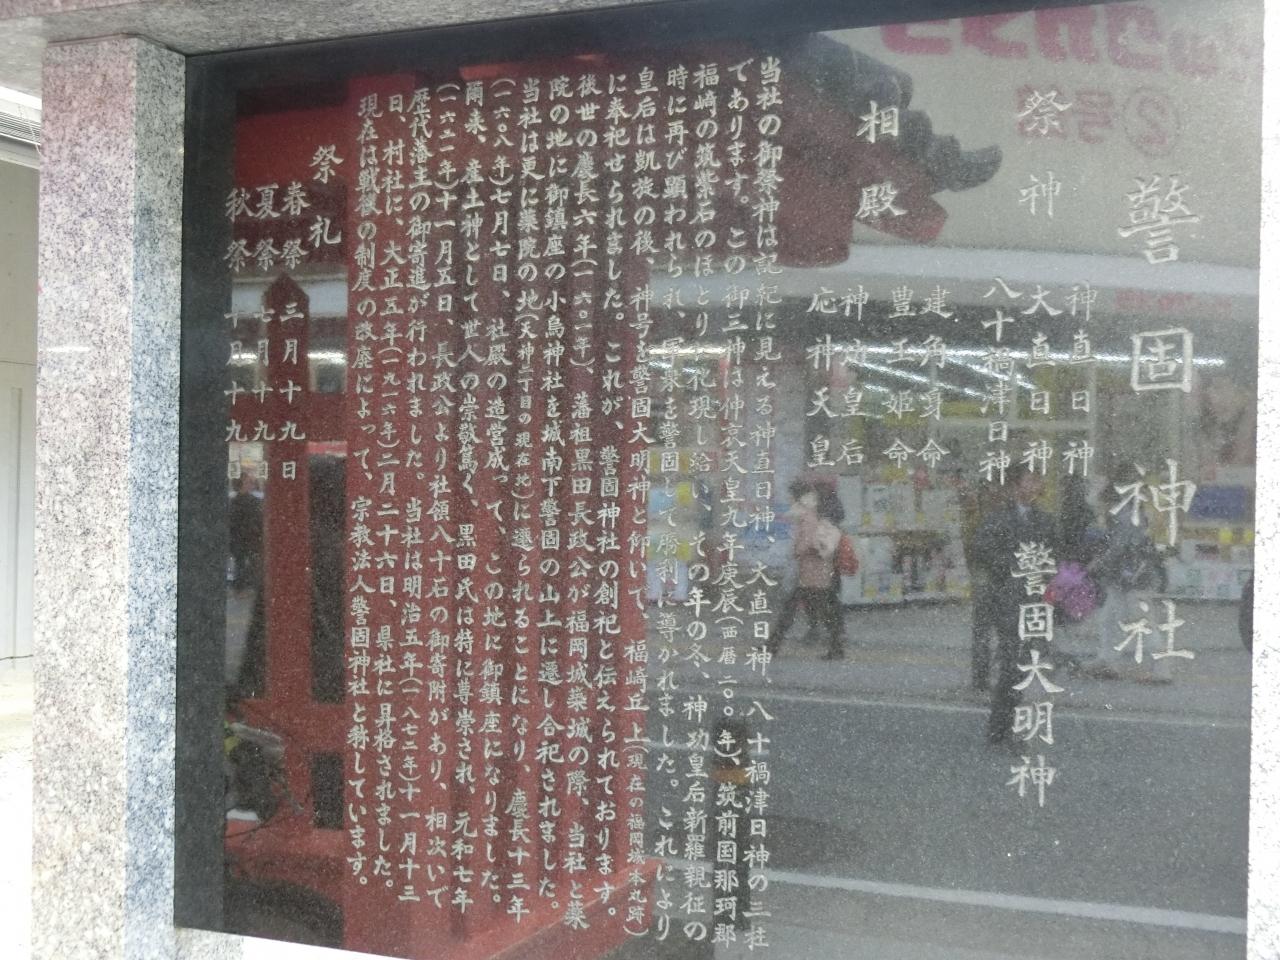 警固神社
祭神
神直日神
大直日神
八十禍津日神
警固大明神
相殿
建角身命
豊玉姫命
神功皇后
応神天皇
当社の御祭神は記紀に見える神直日神、大直日神、八十禍津日神の三柱
であります。この御三神は仲哀天皇九年庚辰(西暦二〇〇年)、筑前国那珂郡
福崎の筑紫石のほとりに現し給い、その年の冬、神功皇后新羅親征の
時に再び顕われられ、軍衆を警固して勝利に導かれました。これにより
皇后は凱旋の後、神号を警固大明神と仰いで、福崎丘上(現在の福岡城本丸跡)
に奉祀せられました。これが、警固神社の創祀と伝えられております。
後世の慶長六年(一六〇一年)、藩祖黒田長政公が福岡城築城の際、当社と薬
院の地に御鎮座の小烏神社を城南下警固の山上に遷し合祀されました。
当社は更に薬院の地(天神二丁目の現在地)に遷られることになり、慶長十三年
(一六〇八年)七月七日、社殿の造営成って、この地に御鎮座になりました。
爾来、産土神として世人の崇敬篤く、黒田氏は特に尊崇され、元和七年
(一六二一年)十一月五日、長政公より社領八十石の御寄附があり、相次いで
歴代藩主の御寄進が行われました。当社は明治五年(一八七二年)十一月十三
日、村社に、大正五年(一九一六年)二月二十六日、県社に昇格されました。
現在は戦後の制度の改廃によって、宗教法人警固神社と称しています。
祭礼
春祭 三月十九日
夏祭 七月十九日
秋祭 十月十九日